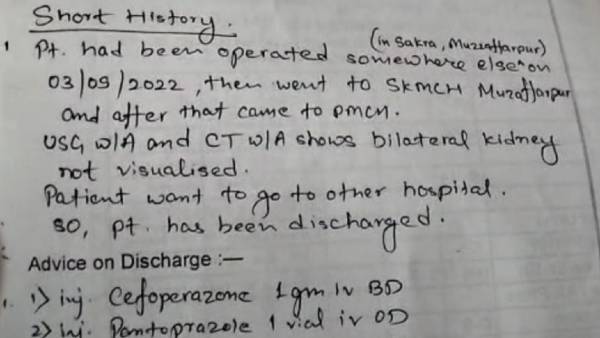 Short History.
1 Pt. had been operated somewhere else on (in Sakra, Muzaffarpur)
03/09/2022, then went to SKMCH Muzaffarpur
and after that came to PMCH.
USG W/A and CT W/A shows bilateral kidney
not visualised.
Patient want to go to other hospital.
SO, pt. has been discharged.
Advice on Discharge :—
1) inj. Cefoperazone 1gm iv BD
2) inj. Pantoprazole 1 vial iv OD